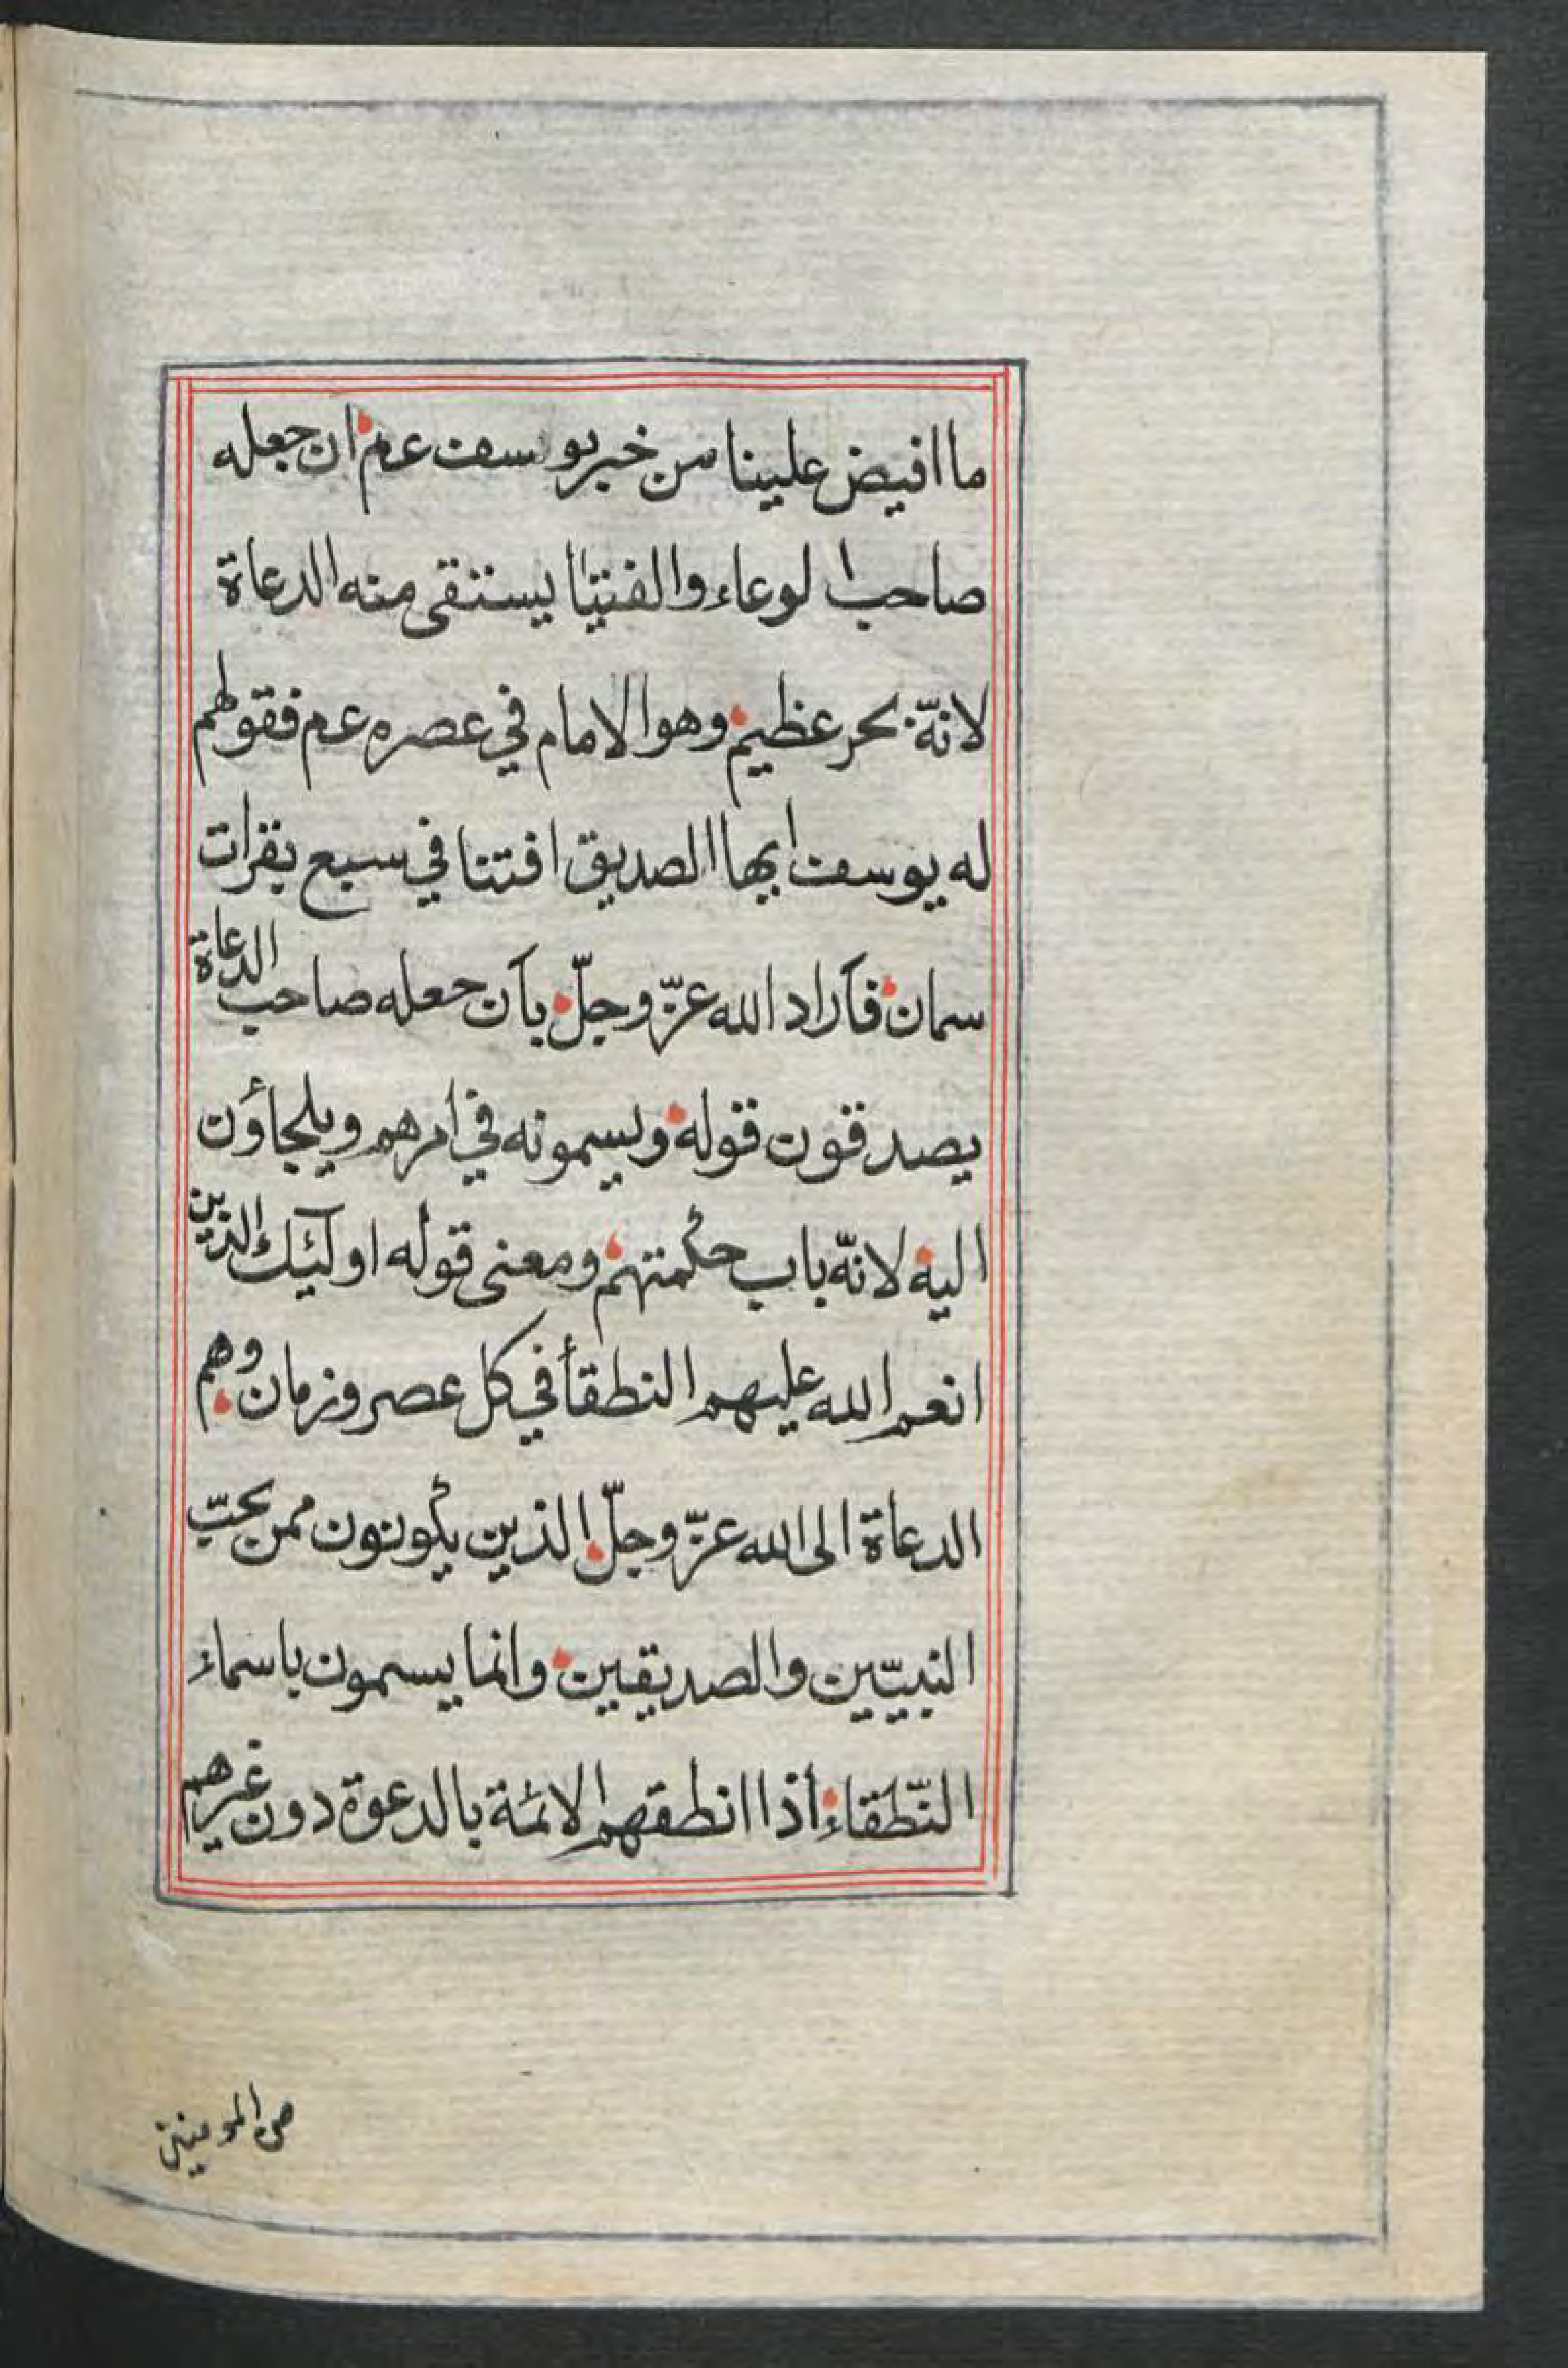 ما افيض علينا من خبر يوسف عم ان جعله
صاحب الوعاء والفتيا يستقى منه الدعاة
لانّه بحر عظيم وهو الامام في عصره عم فقولهم
له يوسف ايها الصديق افتنا في سبع بقرات
سمان فآراد الله عزّ وجلّ بآن جعله صاحب الدعاة
يصدقون قوله ويسمونه في امرهم ويلجاؤن
اليه لانّه باب حكمتهم ومعنى قوله اولٓئك الذين
انعم الله عليهم النطقأ في كل عصر وزمان وهم
الدعاة الى الله عزّ وجلّ الذين يكونون ممن يحبّ
النبيّين والصديقين وانما يسمون باسماء
النّطقاء أذا انطقهم الائمة بالدعوة دون غيرهم
من المومنين